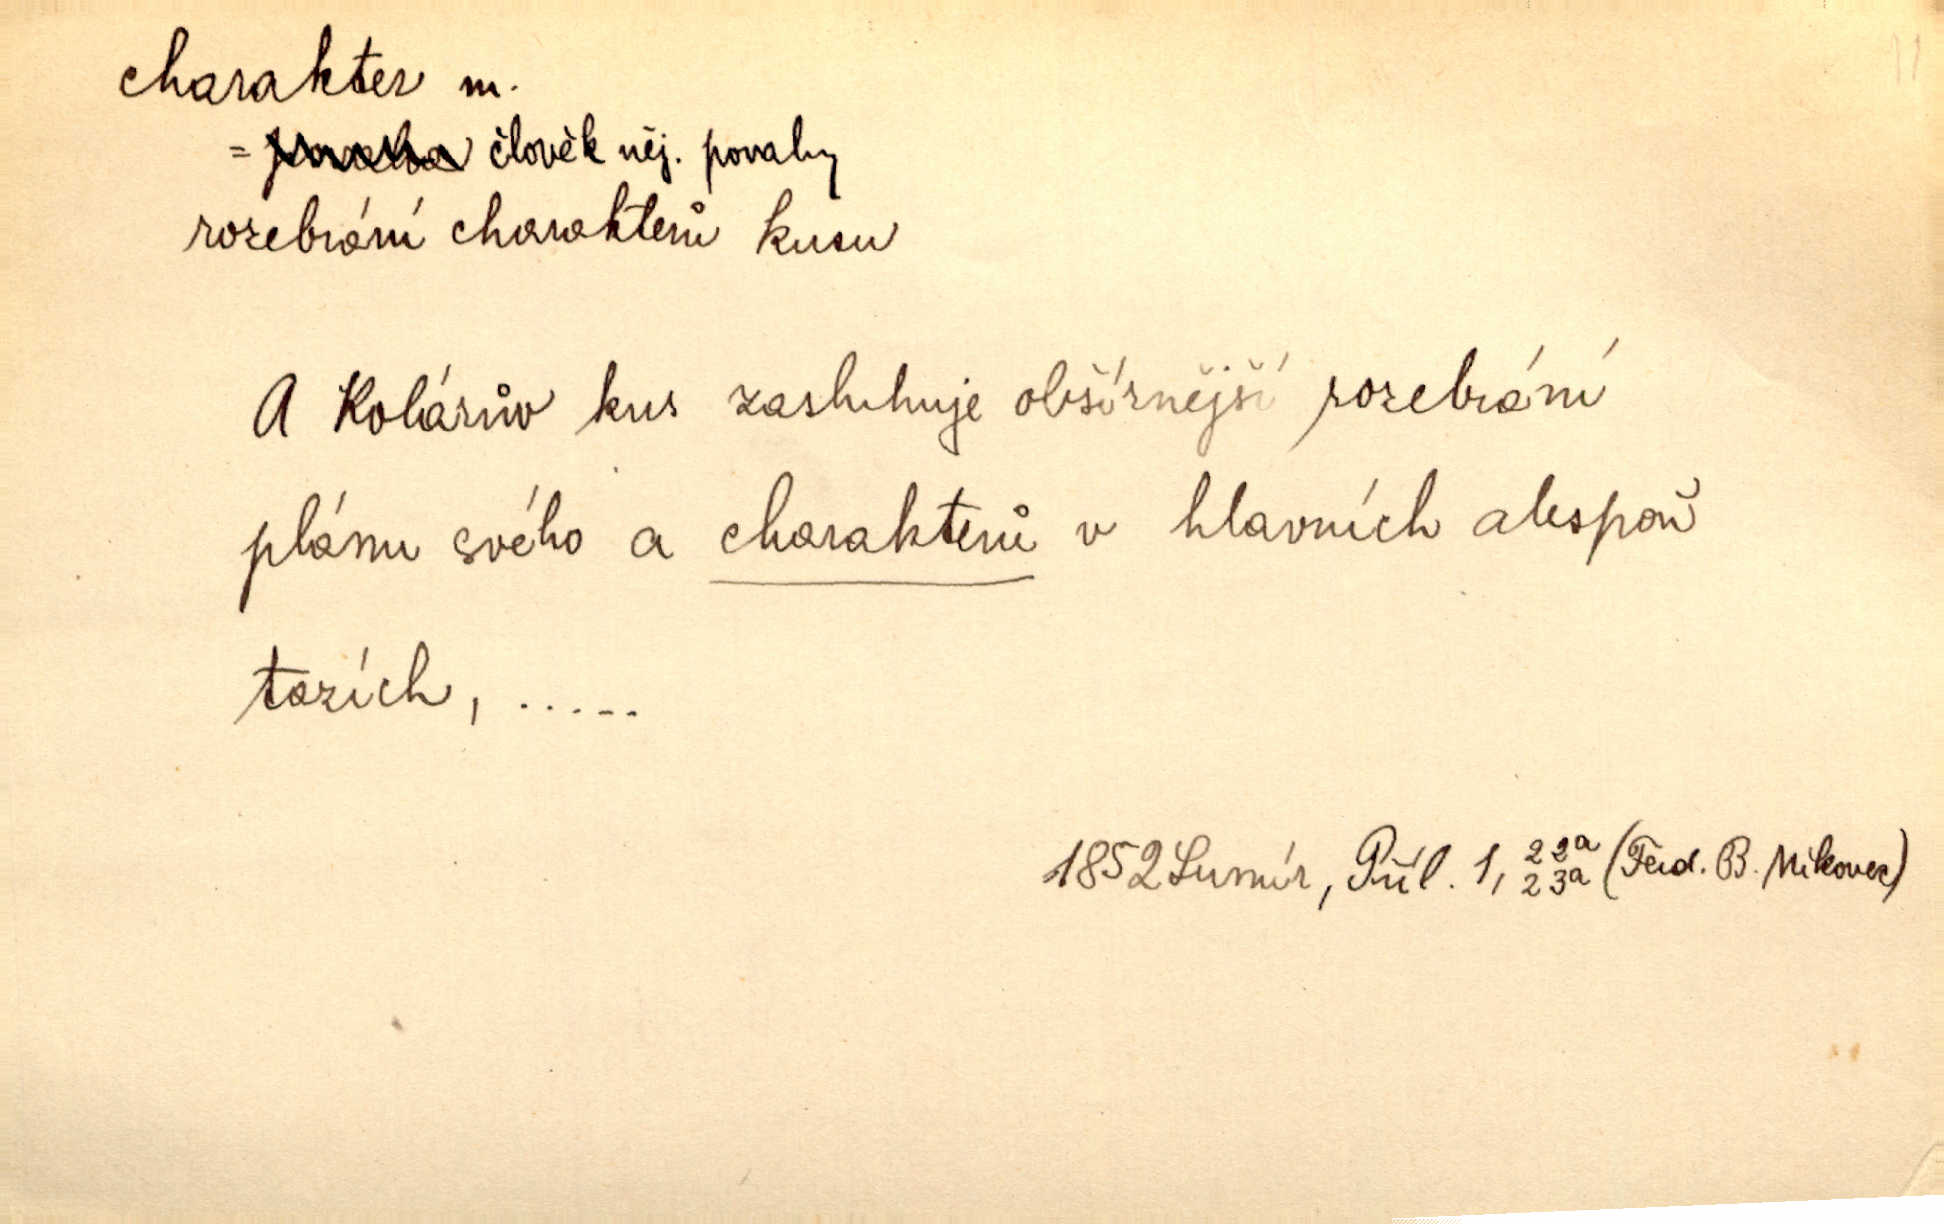 charakter m.
= povaha člověk něj. povahy
rozebrání charakterů kusu
A Kolárův kus zasluhuje obšírnější rozebrání
plánu svého a charakterů v hlavních alespoň
tazích, .....
1852 Lumír, Půl. 1, 22a 23a (Ferd. B. Mikovec)